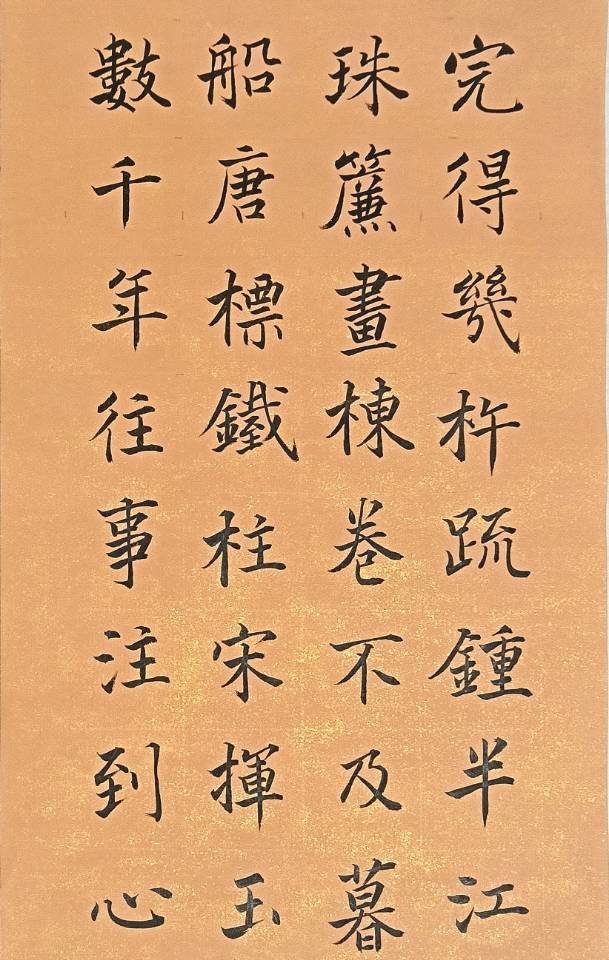 完得幾杵疏鍾半江
珠簾畫棟卷不及暮
船唐標鐵柱宋揮玉
數千年往事注到心